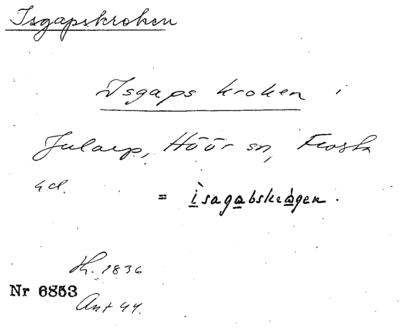 Isgapskroken
Isgaps kroken i
Jularp, Höör sn, Frosta
hd.
= ìsagabskrågen.
Hk. 1836
Nr 6853
Ant 44.